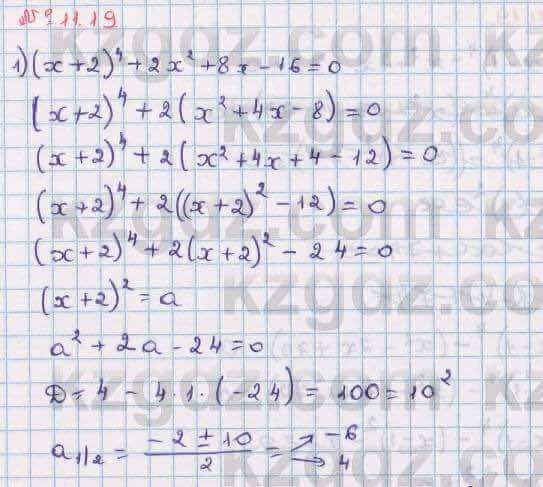 № 9.11.19
1) (x+2)⁴ + 2x² + 8x - 16 = 0
(x+2)⁴ + 2(x² + 4x - 8) = 0
(x+2)⁴ + 2(x² + 4x + 4 - 12) = 0
(x+2)⁴ + 2((x+2)² - 12) = 0
(x+2)⁴ + 2(x+2)² - 24 = 0
(x+2)² = a
a² + 2a - 24 = 0
D = 4 - 4·1·(-24) = 100 = 10²
a₁/₂ = (-2 ± 10)/2 = ↗ -6 → 4
kzgdz.com